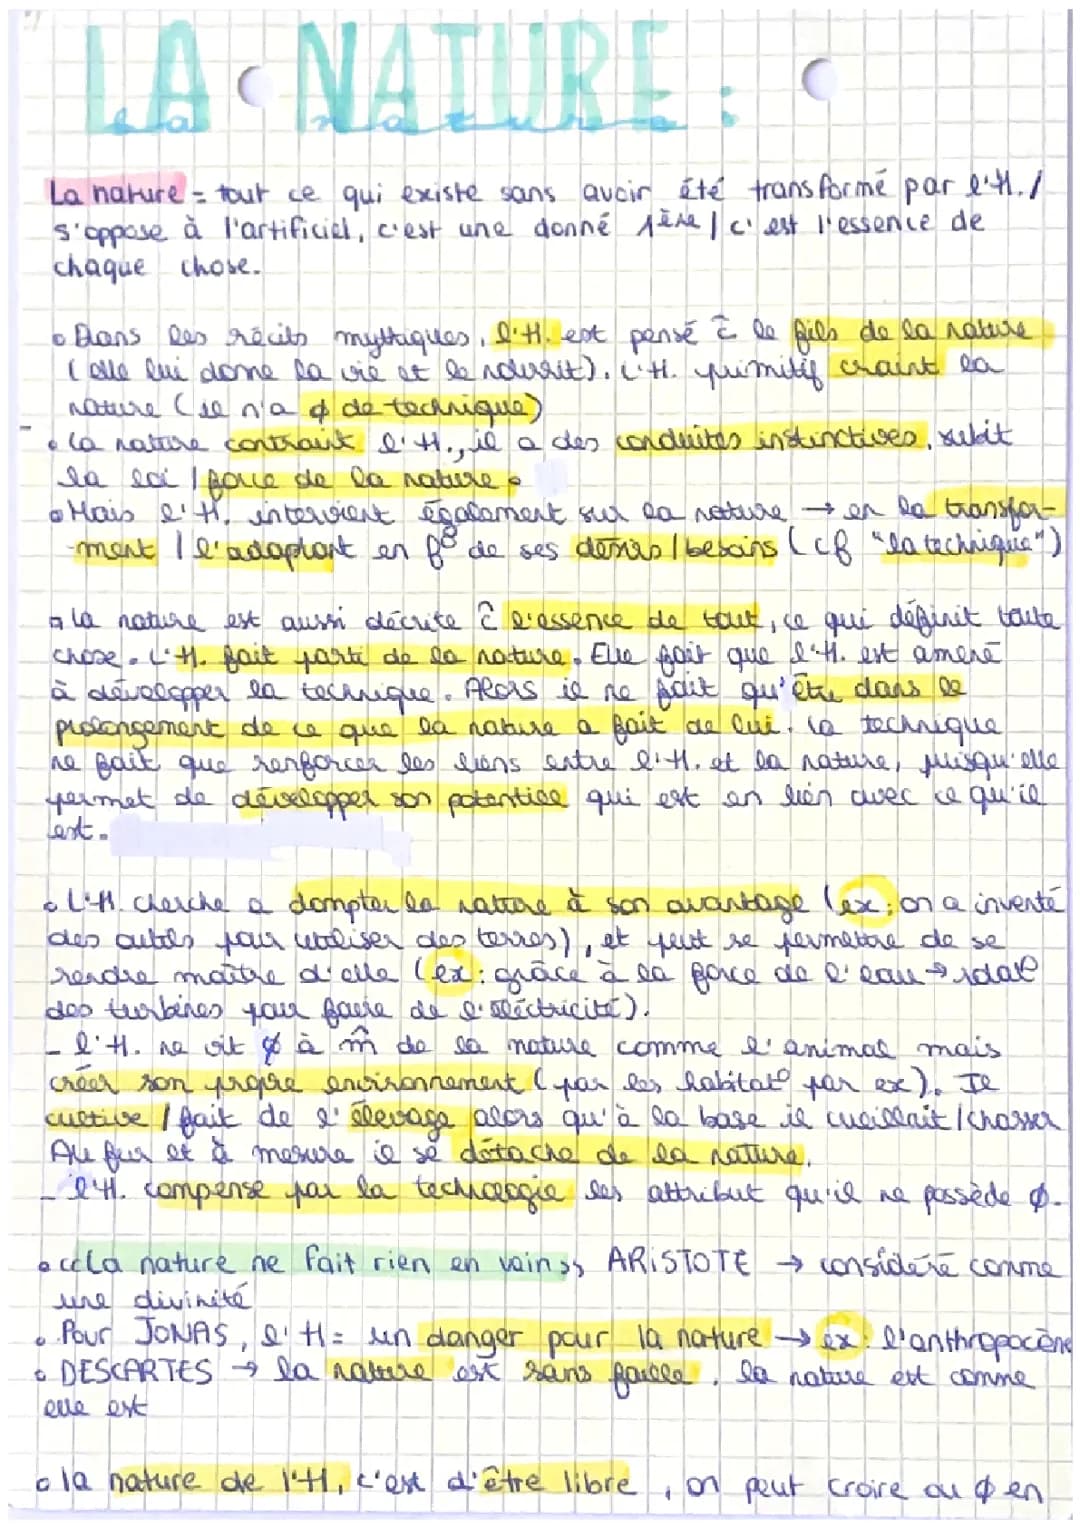 LA NATURE :
La nature
La nature = tout ce qui existe sans avoir été transformé par l'H. /
s'oppose à l'artificiel, c'est une donné 1ère / c'est l'essence de
chaque chose.
• Dans les récits mythiques, l'H. est pensé c̄ le fils de la nature
(elle lui donne la vie et le nourrit). L'H. primitif craint la
nature (il n'a ϕ de technique)
• La nature contraint l'H., il a des conduites instinctives, subit
la loi / force de la nature.
• Mais l'H. intervient également sur la nature → en la transfor-
mant / l'adaptant en f° de ses désirs / besoins (cf "la technique")
• La nature est aussi décrite ĉ l'essence de tout, ce qui définit toute
chose. L'H. fait parti de la nature. Elle fait que l'H. est amené
à développer la technique. Alors il ne fait qu'être dans le
prolongement de ce que la nature a fait de lui. La technique
ne fait que renforcer les liens entre l'H. et la nature, puisqu'elle
permet de développer son potentiel qui est en lien avec ce qu'il
est.
• L'H. cherche a dompter la nature à son avantage (ex: on a inventé
des outils pour utiliser des terres), et peut se permettre de se
rendre maître d'elle (ex: grâce à la force de l'eau →
des turbines pour faire de l'éléctricité).
- l'H. ne vit ϕ à m̂ de la nature comme l'animal mais
créer son propre environnement (par les habitat° par ex). Il
cultive / fait de l'élevage alors qu'à la base il cueillait / chasser
Au fur et à mesure il se détache de la nature.
- l'H. compense par la technologie les attribut qu'il ne possède ϕ.
• «La nature ne fait rien en vain» ARISTOTE → considéré comme
une divinité
• Pour JONAS, l'H = un danger pour la nature → ex: l'anthropocène
• DESCARTES → la nature est sans faille, la nature est comme
elle est
• la nature de l'H, c'est d'être libre, on peut croire ou ϕ en